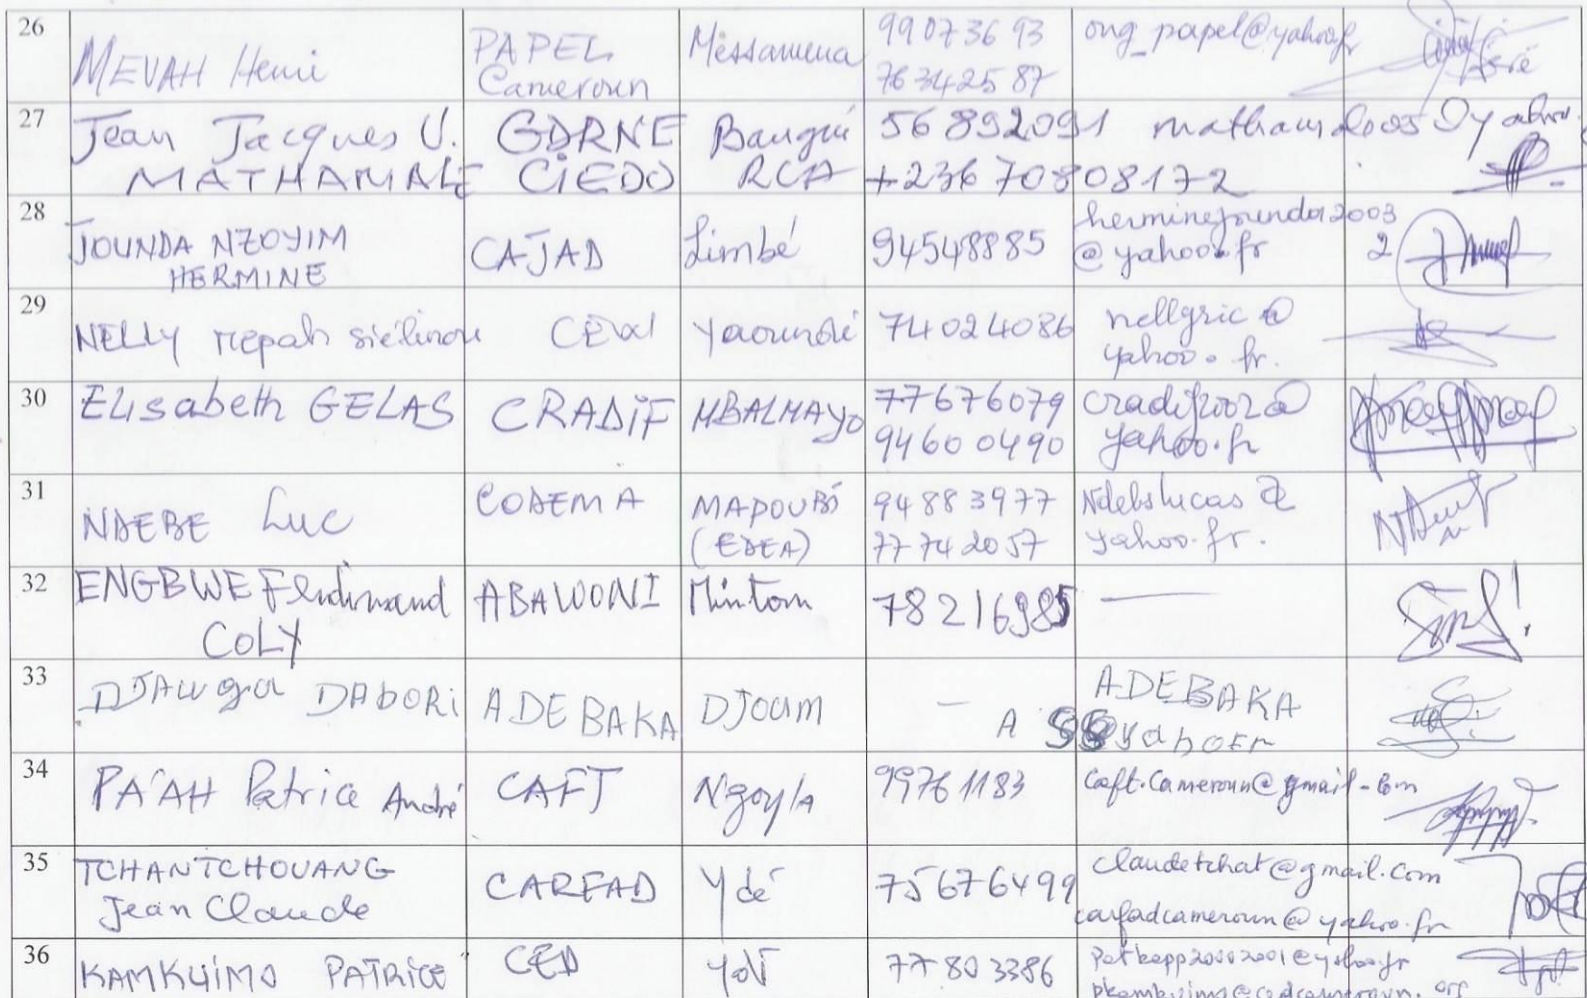 26 MEVAH Henri PAPEL Cameroun Messamena 99073693 76342587 ong_papel@yahoo.fr
27 Jean Jacques U. MATHAMALE GDRNE CIEDD Bangui RCA 56892091 +236 70808172
28 JOUNDA NZOYIM HERMINE CAJAD Limbé 94548885 herminejounda2003 @yahoo.fr 2
29 NELLY mepah siélinou Yaoundé 74024086 nellgric@ yahoo.fr.
30 Elisabeth GELAS CRADIF MBALMAYO 77676079 94600490 cradif2002@ yahoo.fr
31 NDEBE Luc CODEMA MAPOUBI (EDEA) 94883977 77742057 Ndebslucas@ yahoo.fr.
32 ENGBWE Ferdinand COLY ABAWONI Mintom 78216985 —
33 DJAWga DABORi ADEBAKA DJOUM — ADEBAKA
34 PA'AH Patrice André CAFT Ngoyla 99761183 Caft.Cameroun@gmail.com
35 TCHANTCHOUANG Jean Claude CARFAD Ydé 75676499 claudetchat@gmail.com carfadcameroun@yahoo.fr
36 KAMKUIMO PATRICE CED 77803386